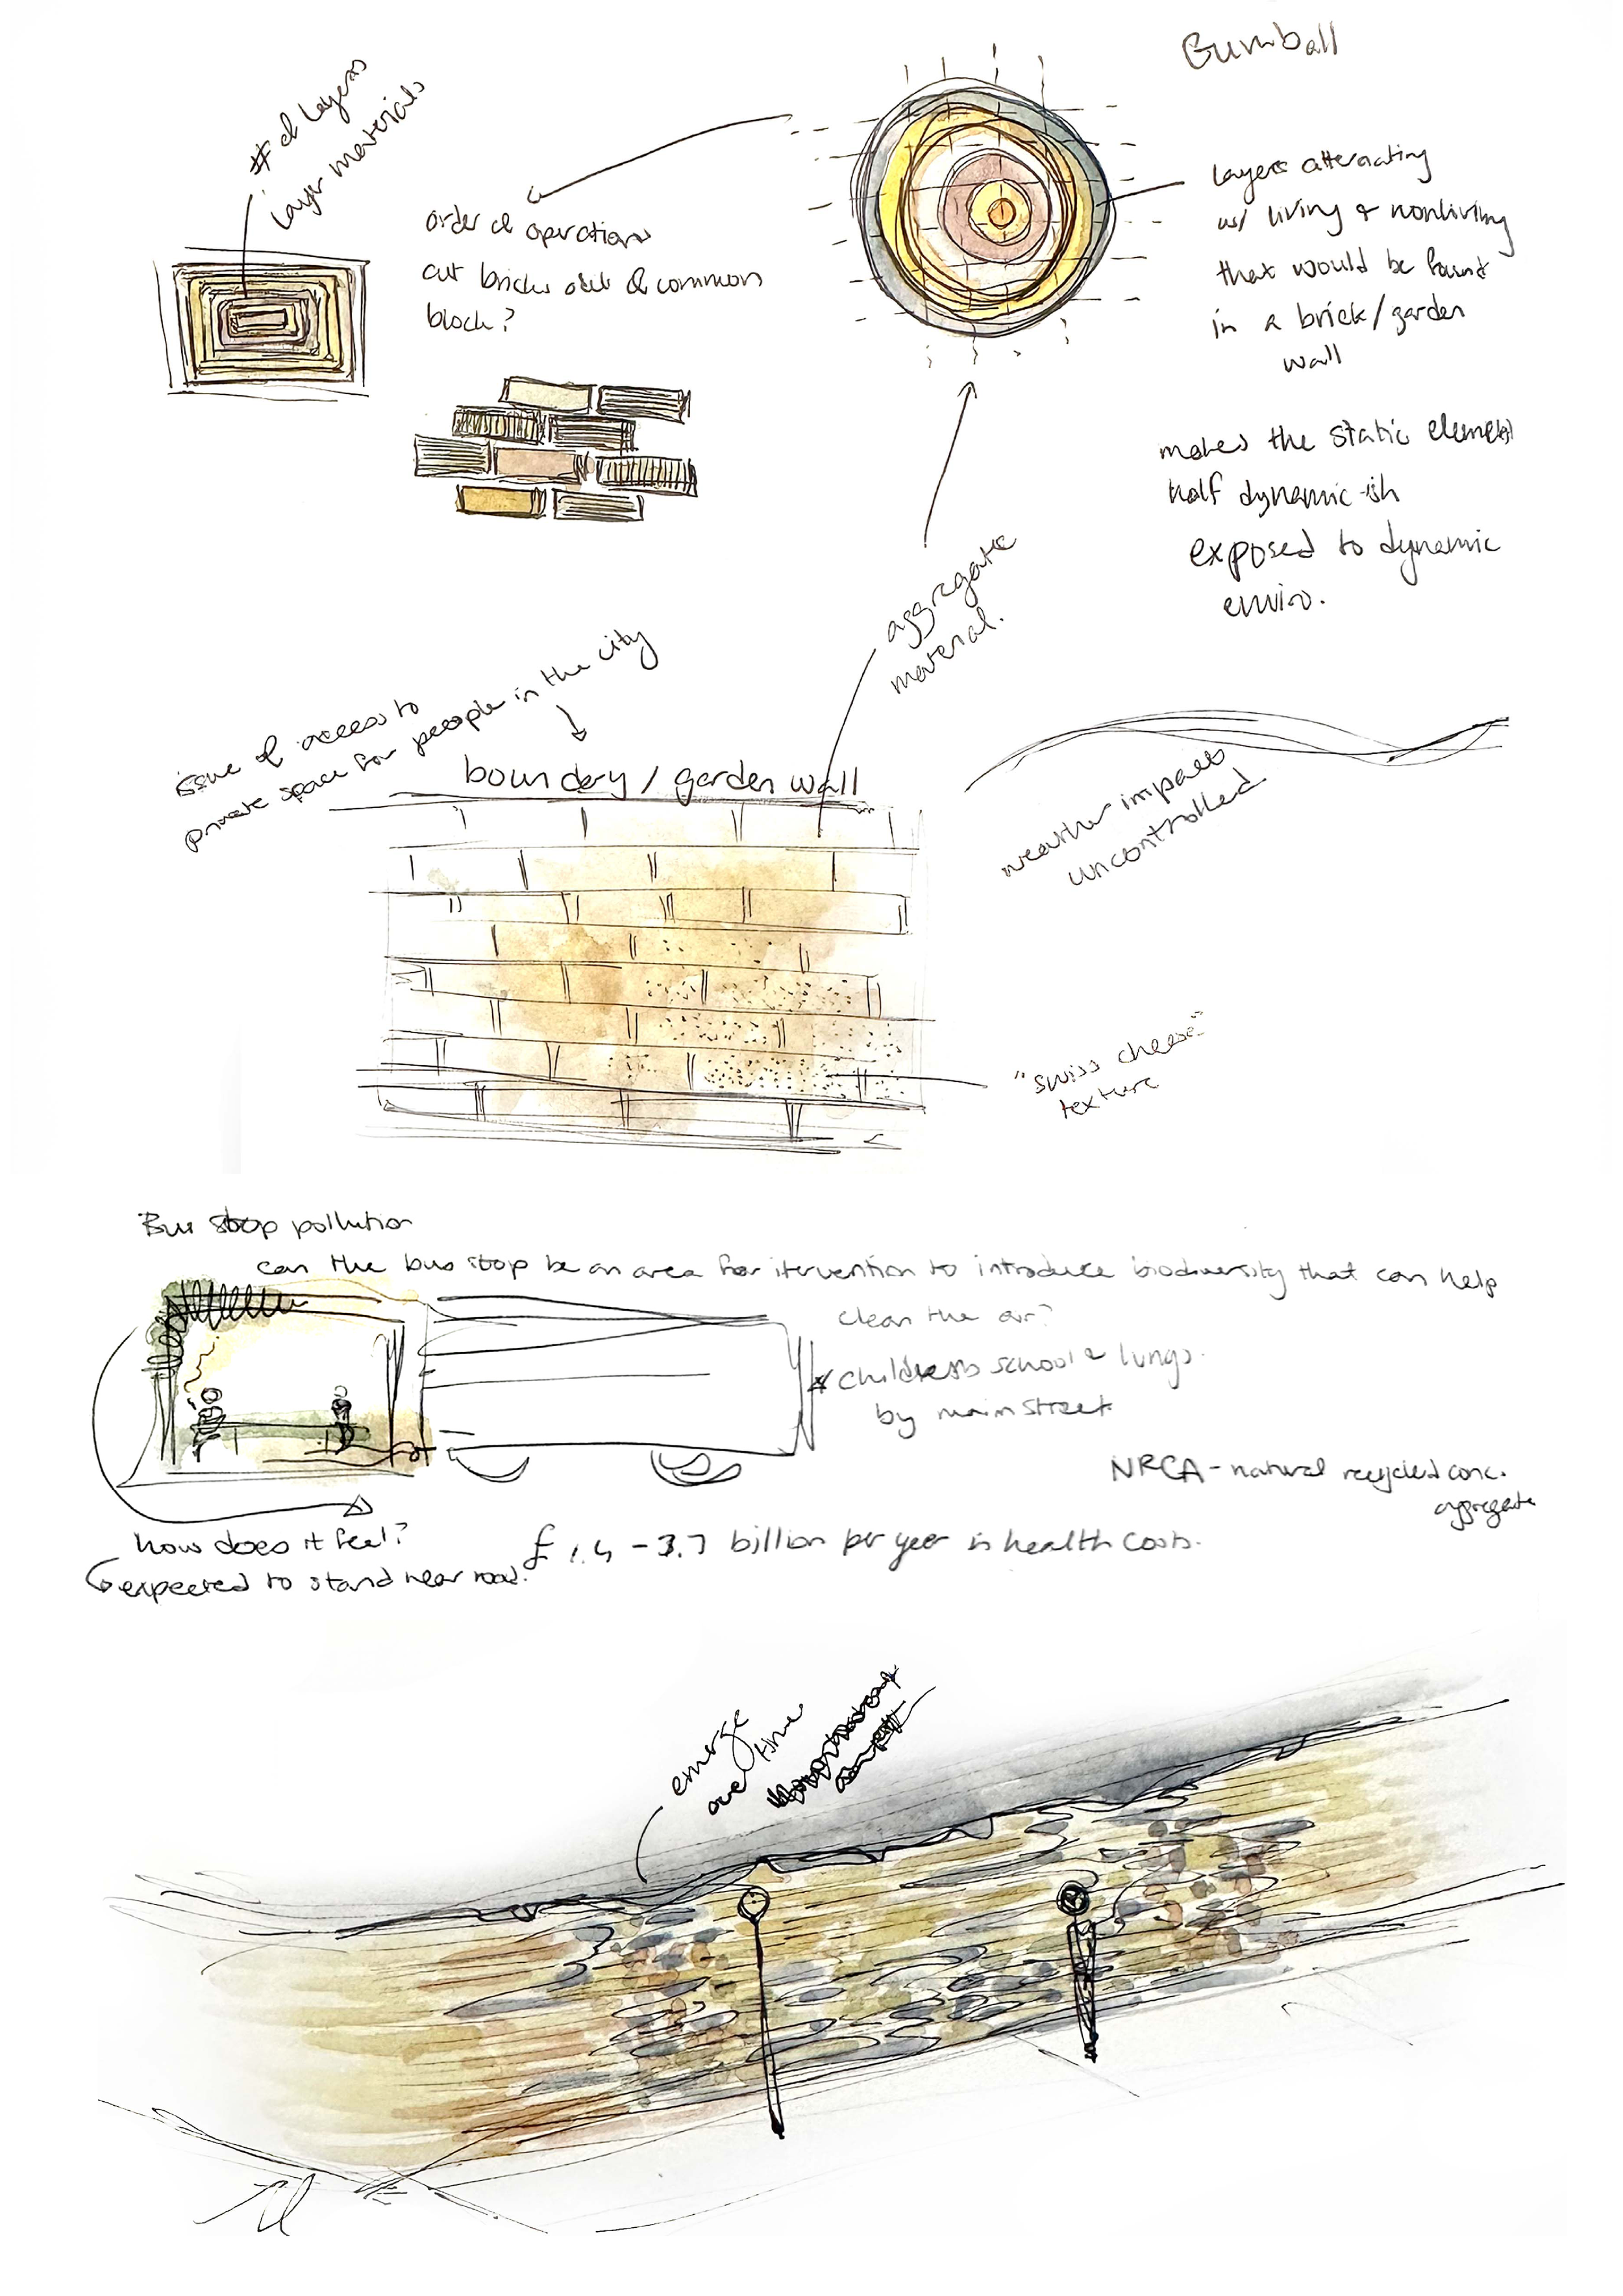 Gumball
# of layers
layer materials
order of operations
cut bricks out of common
block?
layers alternating
w/ living & nonliving
that would be found
in a brick/garden
wall
makes the static element
half dynamic-ish
exposed to dynamic
enviro.
aggregate
material.
issue of access to
private space for people in the city
boundary / garden wall
weather impacts
uncontrolled
"swiss cheese"
texture
Bus stop pollution
can the bus stop be an area for itervention to introduce biodiversity that can help
clean the air?
* childrens school & lungs.
by main street
NRCA - natural recycled conc.
aggregate
how does it feel?
expected to stand near road.
£ 1.4 - 3.7 billion per year in health costs.
emerge
over time